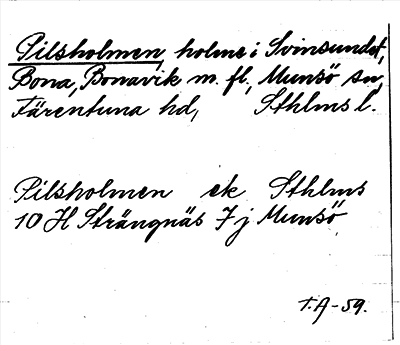 Pilsholmen, holme i Svinsundet,
Bona, Bonavik m. fl., Munsö sn,
Färentuna hd, Sthlms l.
Pilsholmen ek Sthlms
10 H Strängnäs 7 j Munsö
T.A-59.